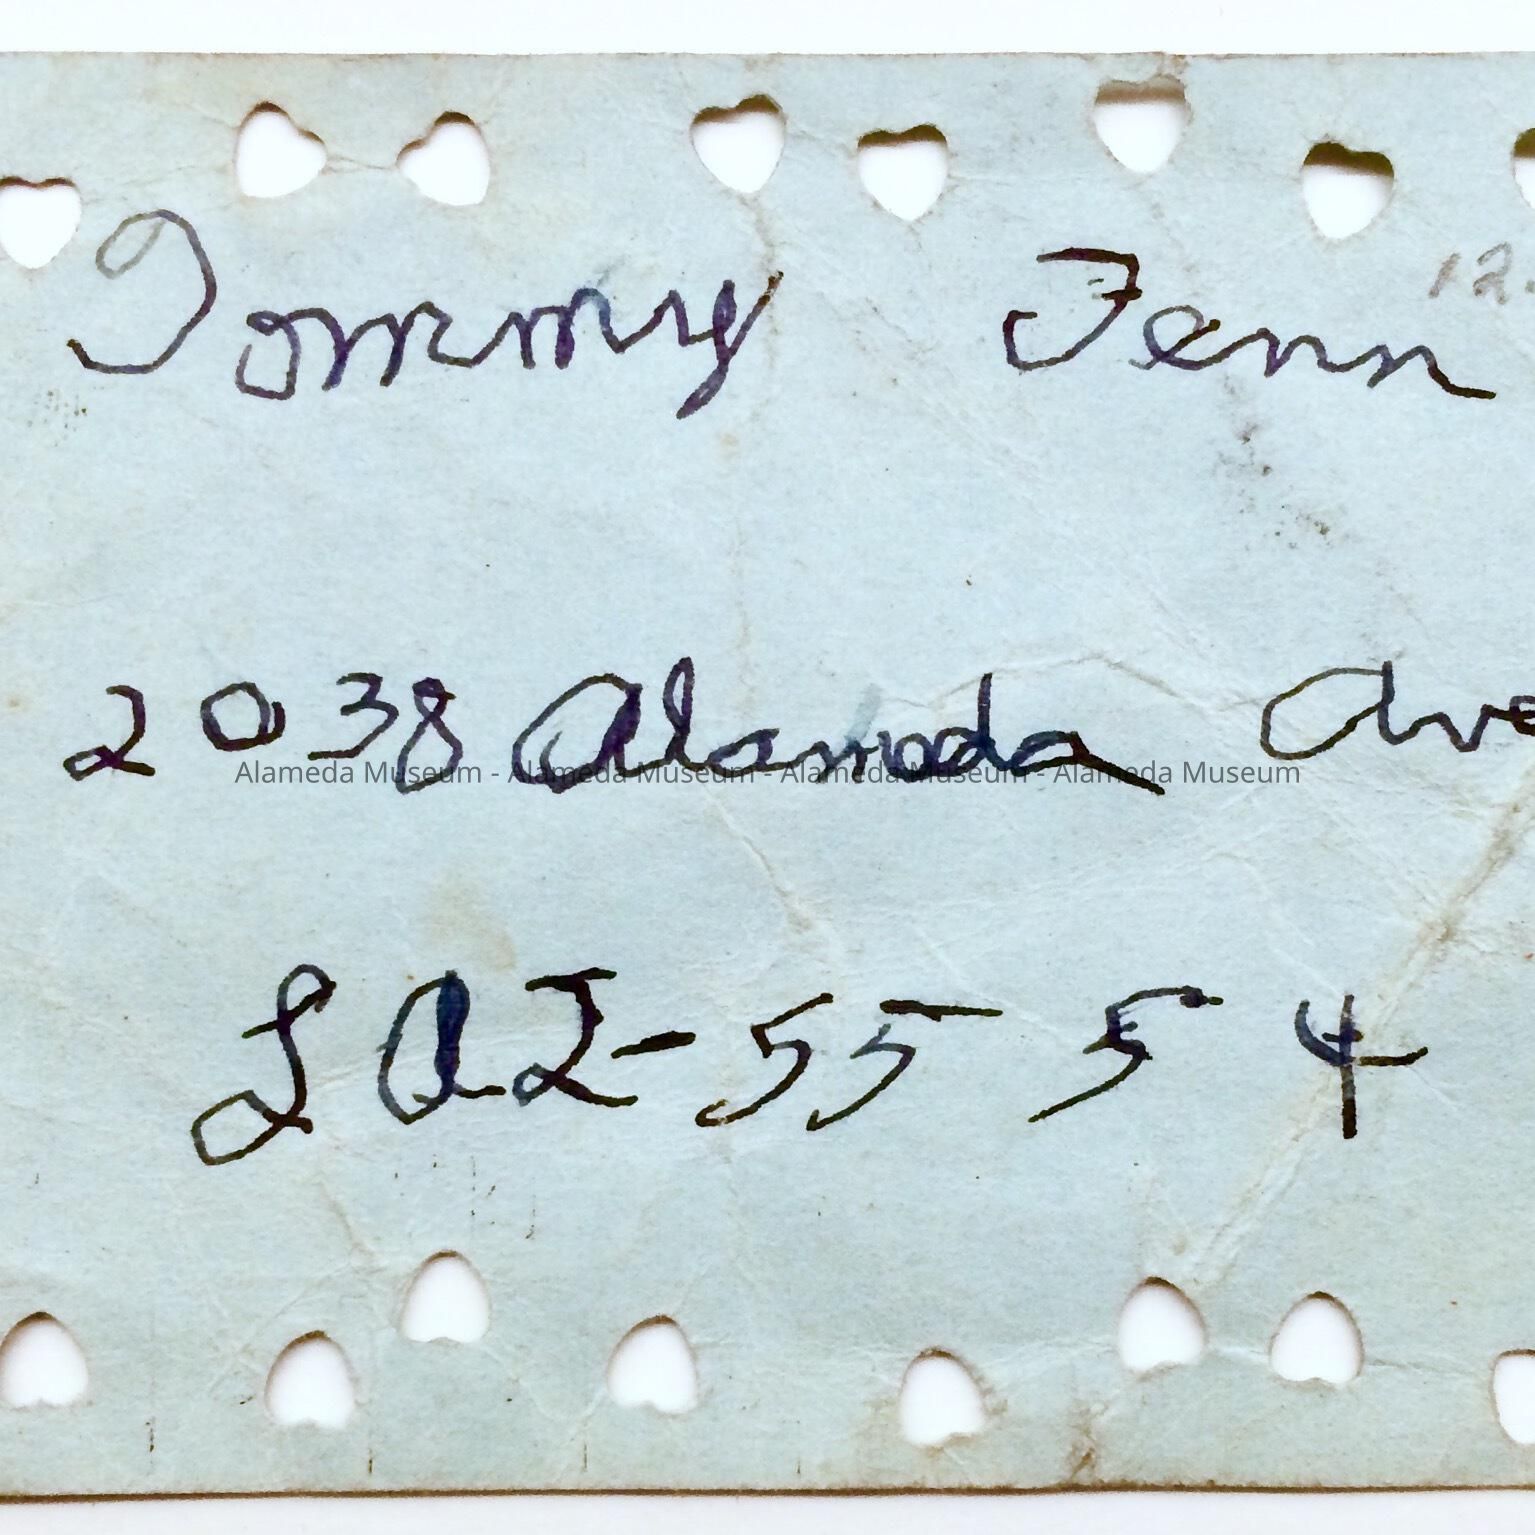 Tommy Fenn
12.
2038 Alameda Ave
Alameda Museum - Alameda Museum - Alameda Museum - Alameda Museum
LA2-5554